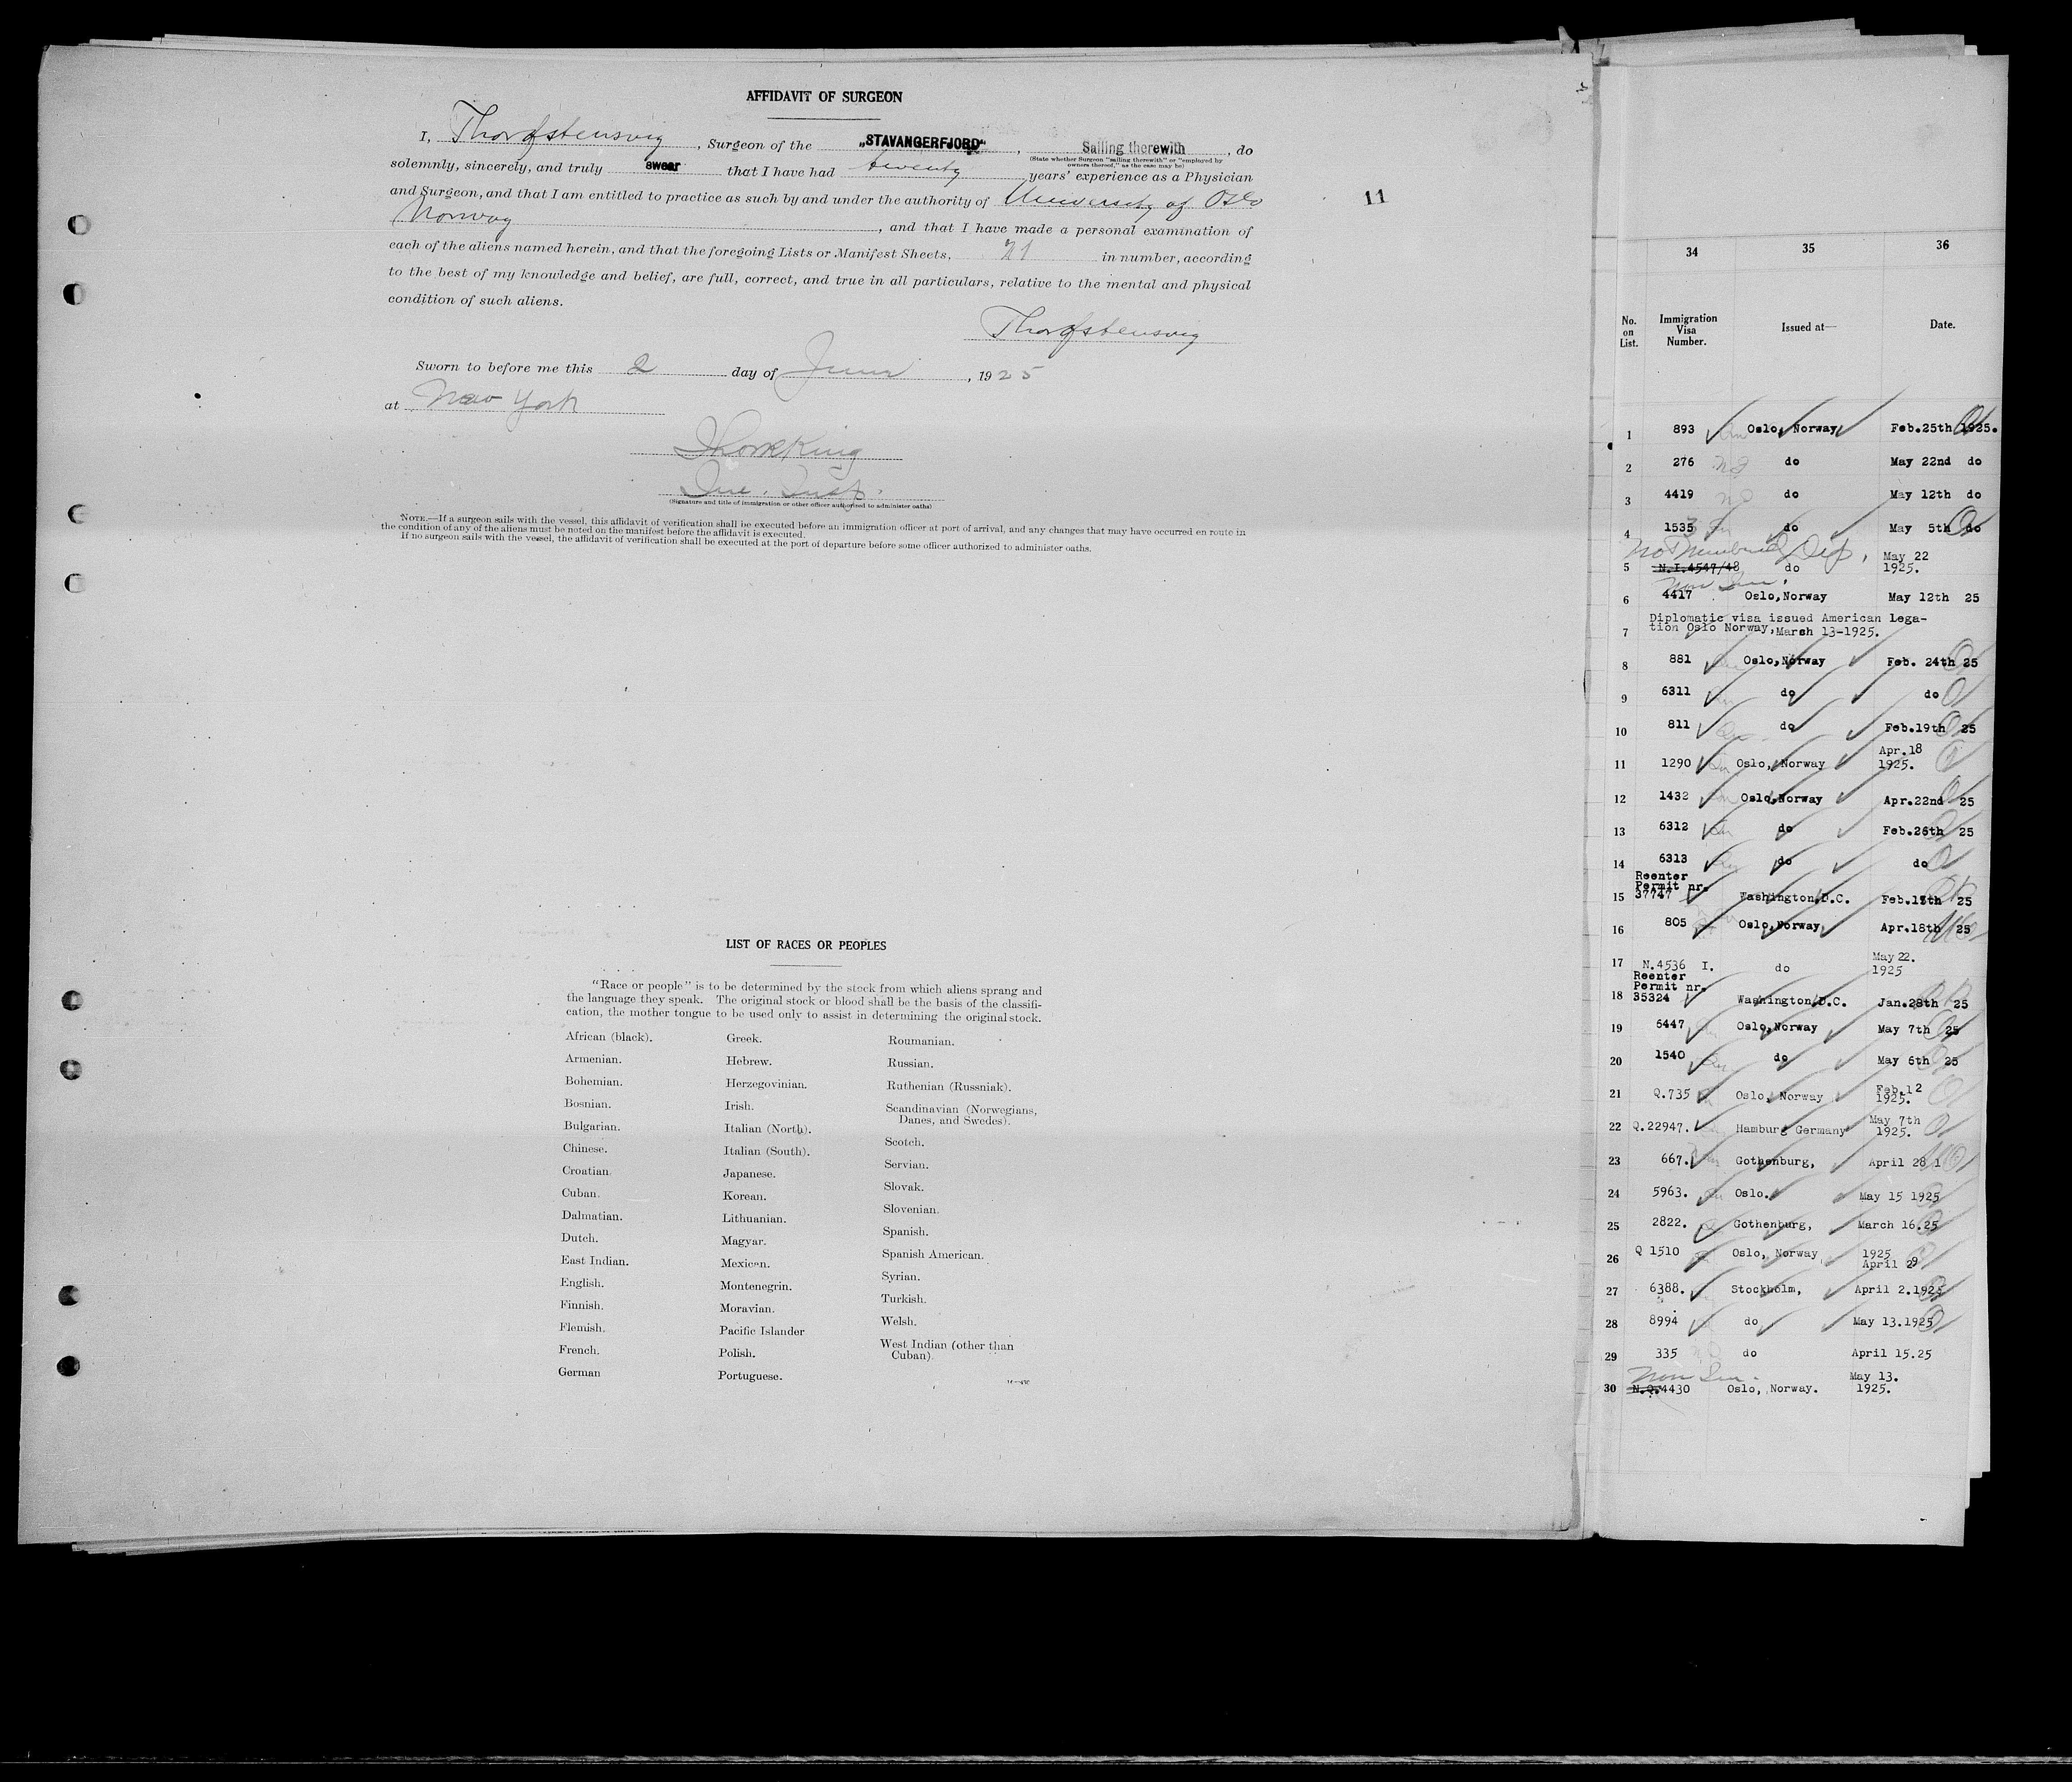 AFFIDAVIT OF SURGEON
I, Thorofstensvig, Surgeon of the „STAVANGERFJORD“, Sailing therewith, do
(State whether Surgeon "sailing therewith" or "employed by
owners thereof," as the case may be)
solemnly, sincerely, and truly swear that I have had twenty years' experience as a Physician
and Surgeon, and that I am entitled to practice as such by and under the authority of University of Oslo
Norway, and that I have made a personal examination of
each of the aliens named herein, and that the foregoing Lists or Manifest Sheets, 21 in number, according
to the best of my knowledge and belief, are full, correct, and true in all particulars, relative to the mental and physical
condition of such aliens.
Thorofstensvig
Sworn to before me this 2 day of June, 1925
at New York
King
(Signature and title of immigration or other officer authorized to administer oaths)
NOTE.—If a surgeon sails with the vessel, this affidavit of verification shall be executed before an immigration officer at port of arrival, and any changes that may have occurred en route in
the condition of any of the aliens must be noted on the manifest before the affidavit is executed.
If no surgeon sails with the vessel, the affidavit of verification shall be executed at the port of departure before some officer authorized to administer oaths.
11
LIST OF RACES OR PEOPLES
"Race or people" is to be determined by the stock from which aliens sprang and
the language they speak. The original stock or blood shall be the basis of the classifi-
cation, the mother tongue to be used only to assist in determining the original stock.
African (black).
Armenian.
Bohemian.
Bosnian.
Bulgarian.
Chinese.
Croatian.
Cuban.
Dalmatian.
Dutch.
East Indian.
English.
Finnish.
Flemish.
French.
German
Greek.
Hebrew.
Herzegovinian.
Irish.
Italian (North).
Italian (South).
Japanese.
Korean.
Lithuanian.
Magyar.
Mexican.
Montenegrin.
Moravian.
Pacific Islander
Polish.
Portuguese.
Roumanian.
Russian.
Ruthenian (Russniak).
Scandinavian (Norwegians,
Danes, and Swedes).
Scotch.
Servian.
Slovak.
Slovenian.
Spanish.
Spanish American.
Syrian.
Turkish.
Welsh.
West Indian (other than
Cuban).
34 35 36
No. on List. Immigration Visa Number. Issued at— Date.
1 893 Oslo, Norway Feb.25th 1925.
2 276 do May 22nd do
3 4419 do May 12th do
4 1535 do May 5th do
5 N.I.4547/48 do May 22 1925.
Non Im.
6 4417 Oslo,Norway May 12th 25
7 Diplomatic visa issued American Lega-
tion Oslo Norway, March 13-1925.
8 881 Oslo,Norway Feb. 24th 25
9 6311 do do
10 811 do Feb.19th 25
11 1290 Oslo, Norway Apr.18 1925.
12 1432 Oslo,Norway Apr.22nd 25
13 6312 do Feb.26th 25
14 6313 do do
15 Reenter Permit nr. 37747 Washington,D.C. Feb.13th 25
16 805 Oslo,Norway Apr.18th 25
17 N.4536 I. do May 22. 1925
18 Reenter Permit nr. 35324 Washington,D.C. Jan.28th 25
19 6447 Oslo,Norway May 7th 25
20 1540 do May 6th 25
21 Q.735 Oslo, Norway Feb.12 1925.
22 Q.22947. Hamburg Germany May 7th 1925.
23 667. Gothenburg, April 28
24 5963. Oslo. May 15 1925
25 2822. Gothenburg, March 16.25
26 Q 1510 Oslo, Norway 1925 April 29
27 6388. Stockholm, April 2.1925
28 8994 do May 13.1925
29 335 do April 15.25
Non Im.
30 N.Q.4430 Oslo, Norway. May 13. 1925.